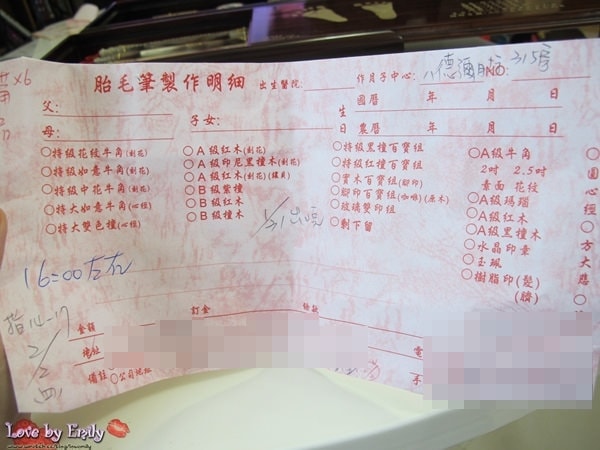 x6
胎毛筆製作明細 出生醫院: 作月子中心: 八德彌月 NO: 315房
父:
母:
子女:
生日
國曆 年 月 日
農曆 年 月 日
○特級花紋牛角(刻花)
○特級如意牛角(刻花)
○特級中花牛角(刻花)
○特大如意牛角(心經)
○特大雙色檀(心經)
○A級紅木(刻花)
○A級印尼黑檀木(刻花)
○A級紅木(刻花)(鑲貝)
○B級紫檀
○B級紅木
○B級檀木
○特級黑檀百寶組
○特級紅檀百寶組
○實木百寶組(腳印)
○腳印百寶組(咖啡)(原木)
○玻璃雙印組
○剩下留
○A級牛角
2吋 2.5吋
素面 花紋
○A級瑪瑙
○A級紅木
○A級黑檀木
○水晶印章
○玉珮
○樹脂印(髮)
(臍)
○圓心經
○方大悲
1/31出院
16:00左右
2/2
金額 訂金 餘款
地址 電
備註 ○公司地址 手
Love by Emily